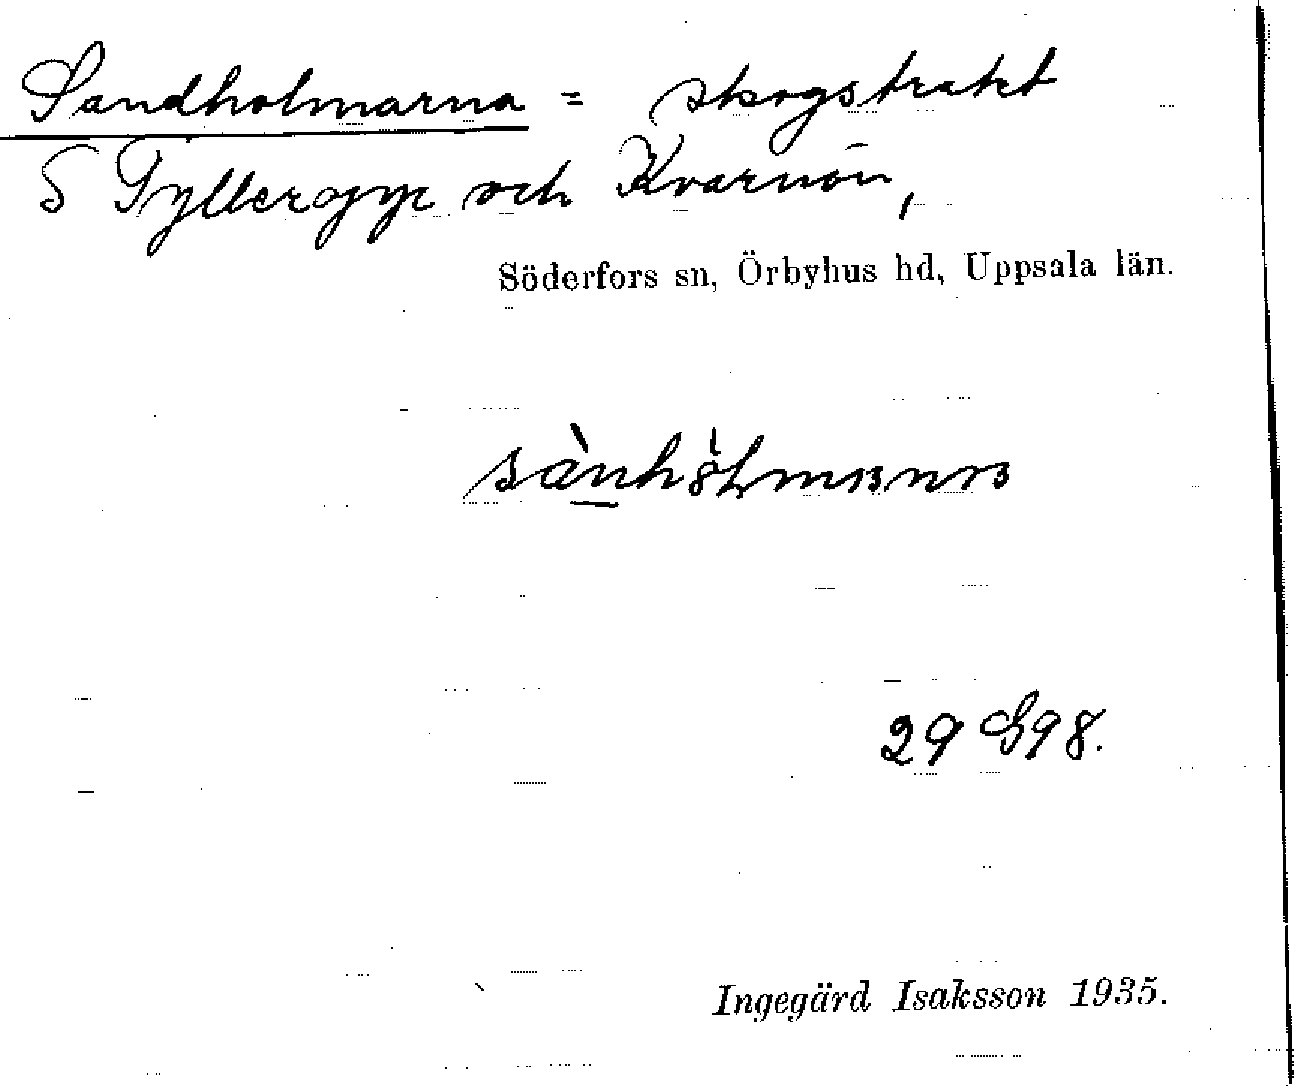 Sandholmarna = skogstrakt
S Tyllergyr och Kvarnön,
Söderfors sn, Örbyhus hd, Uppsala län.
29 G98.
Ingegärd Isaksson 1935.